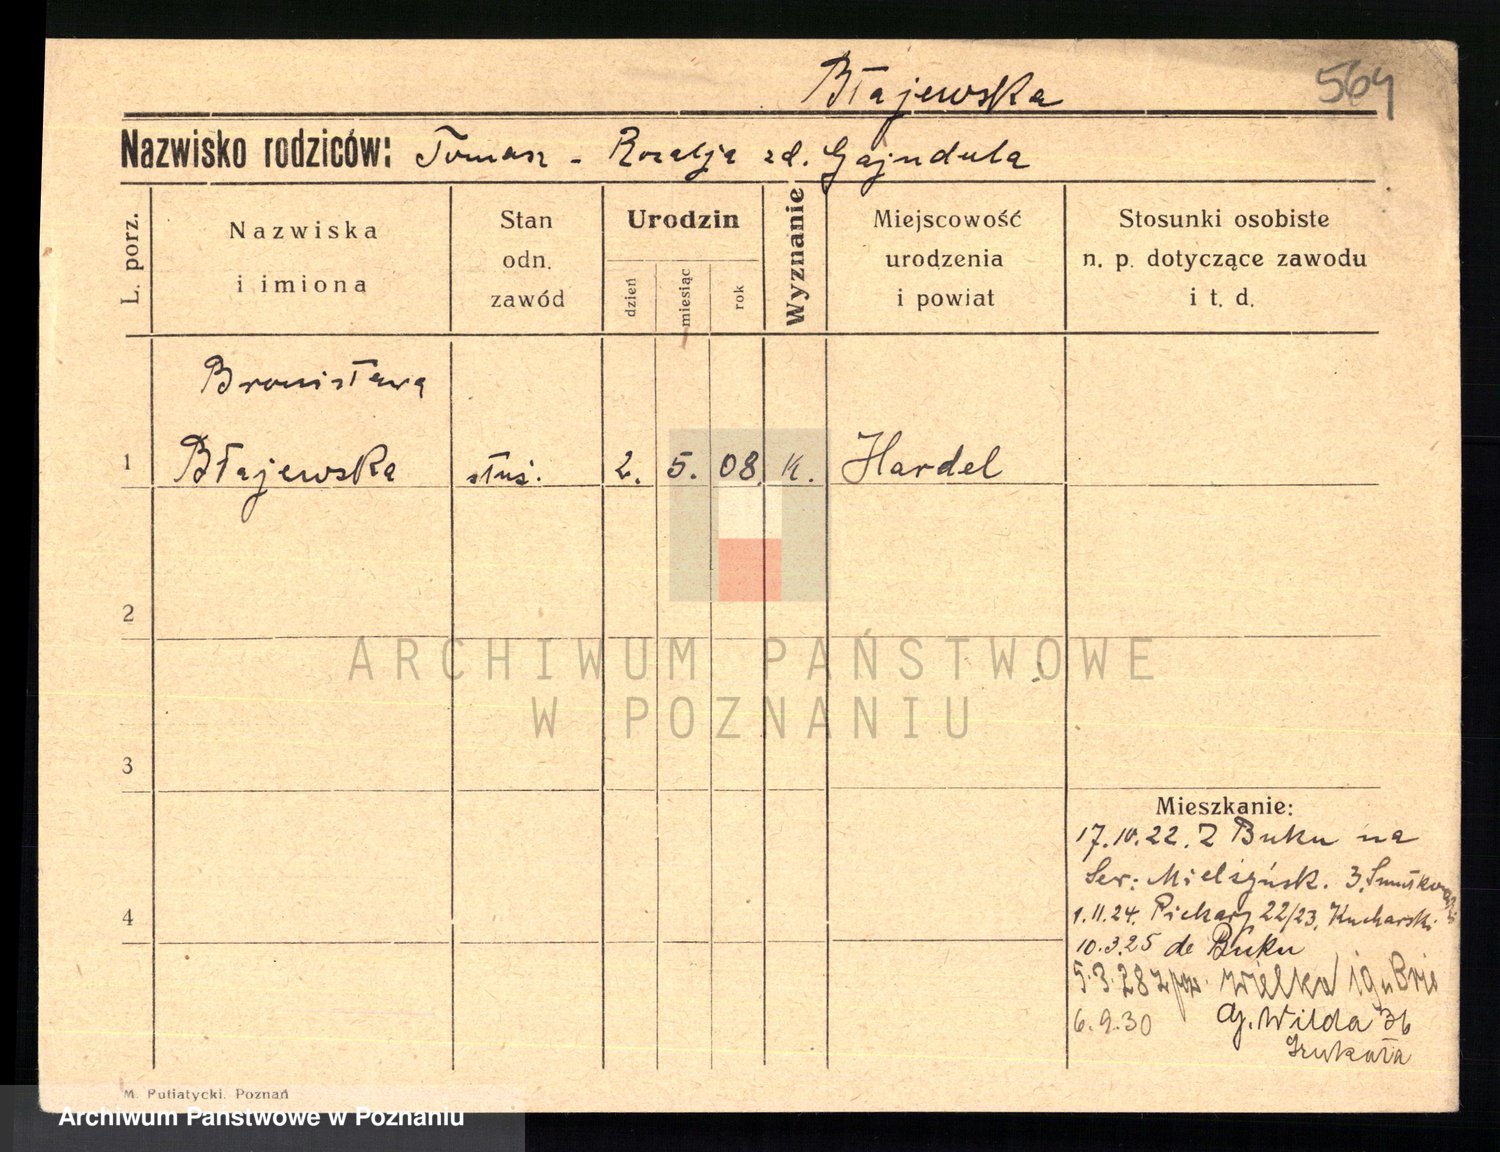 Błajewska
564
Nazwisko rodziców: Tomasz - Rozalja zd. Gajndula
L. porz.
Nazwiska
i imiona
Stan
odn.
zawód
Urodzin
dzień
miesiąc
rok
Wyznanie
Miejscowość
urodzenia
i powiat
Stosunki osobiste
n. p. dotyczące zawodu
i t. d.
Bronisława
1 Błajewska służ. 2. 5. 08. K. Hardel
2
ARCHIWUM PAŃSTWOWE
W POZNANIU
3
Mieszkanie:
17.10.22. Z Buku na
Sew: Mielżyńsk. 3.
4
1.11.24. Piekary 22/23, Kucharski
10.3.25 do Buku
5.3.28 Wielka
6.9.30 Wilda 36
M. Putiatycki, Poznań
Archiwum Państwowe w Poznaniu